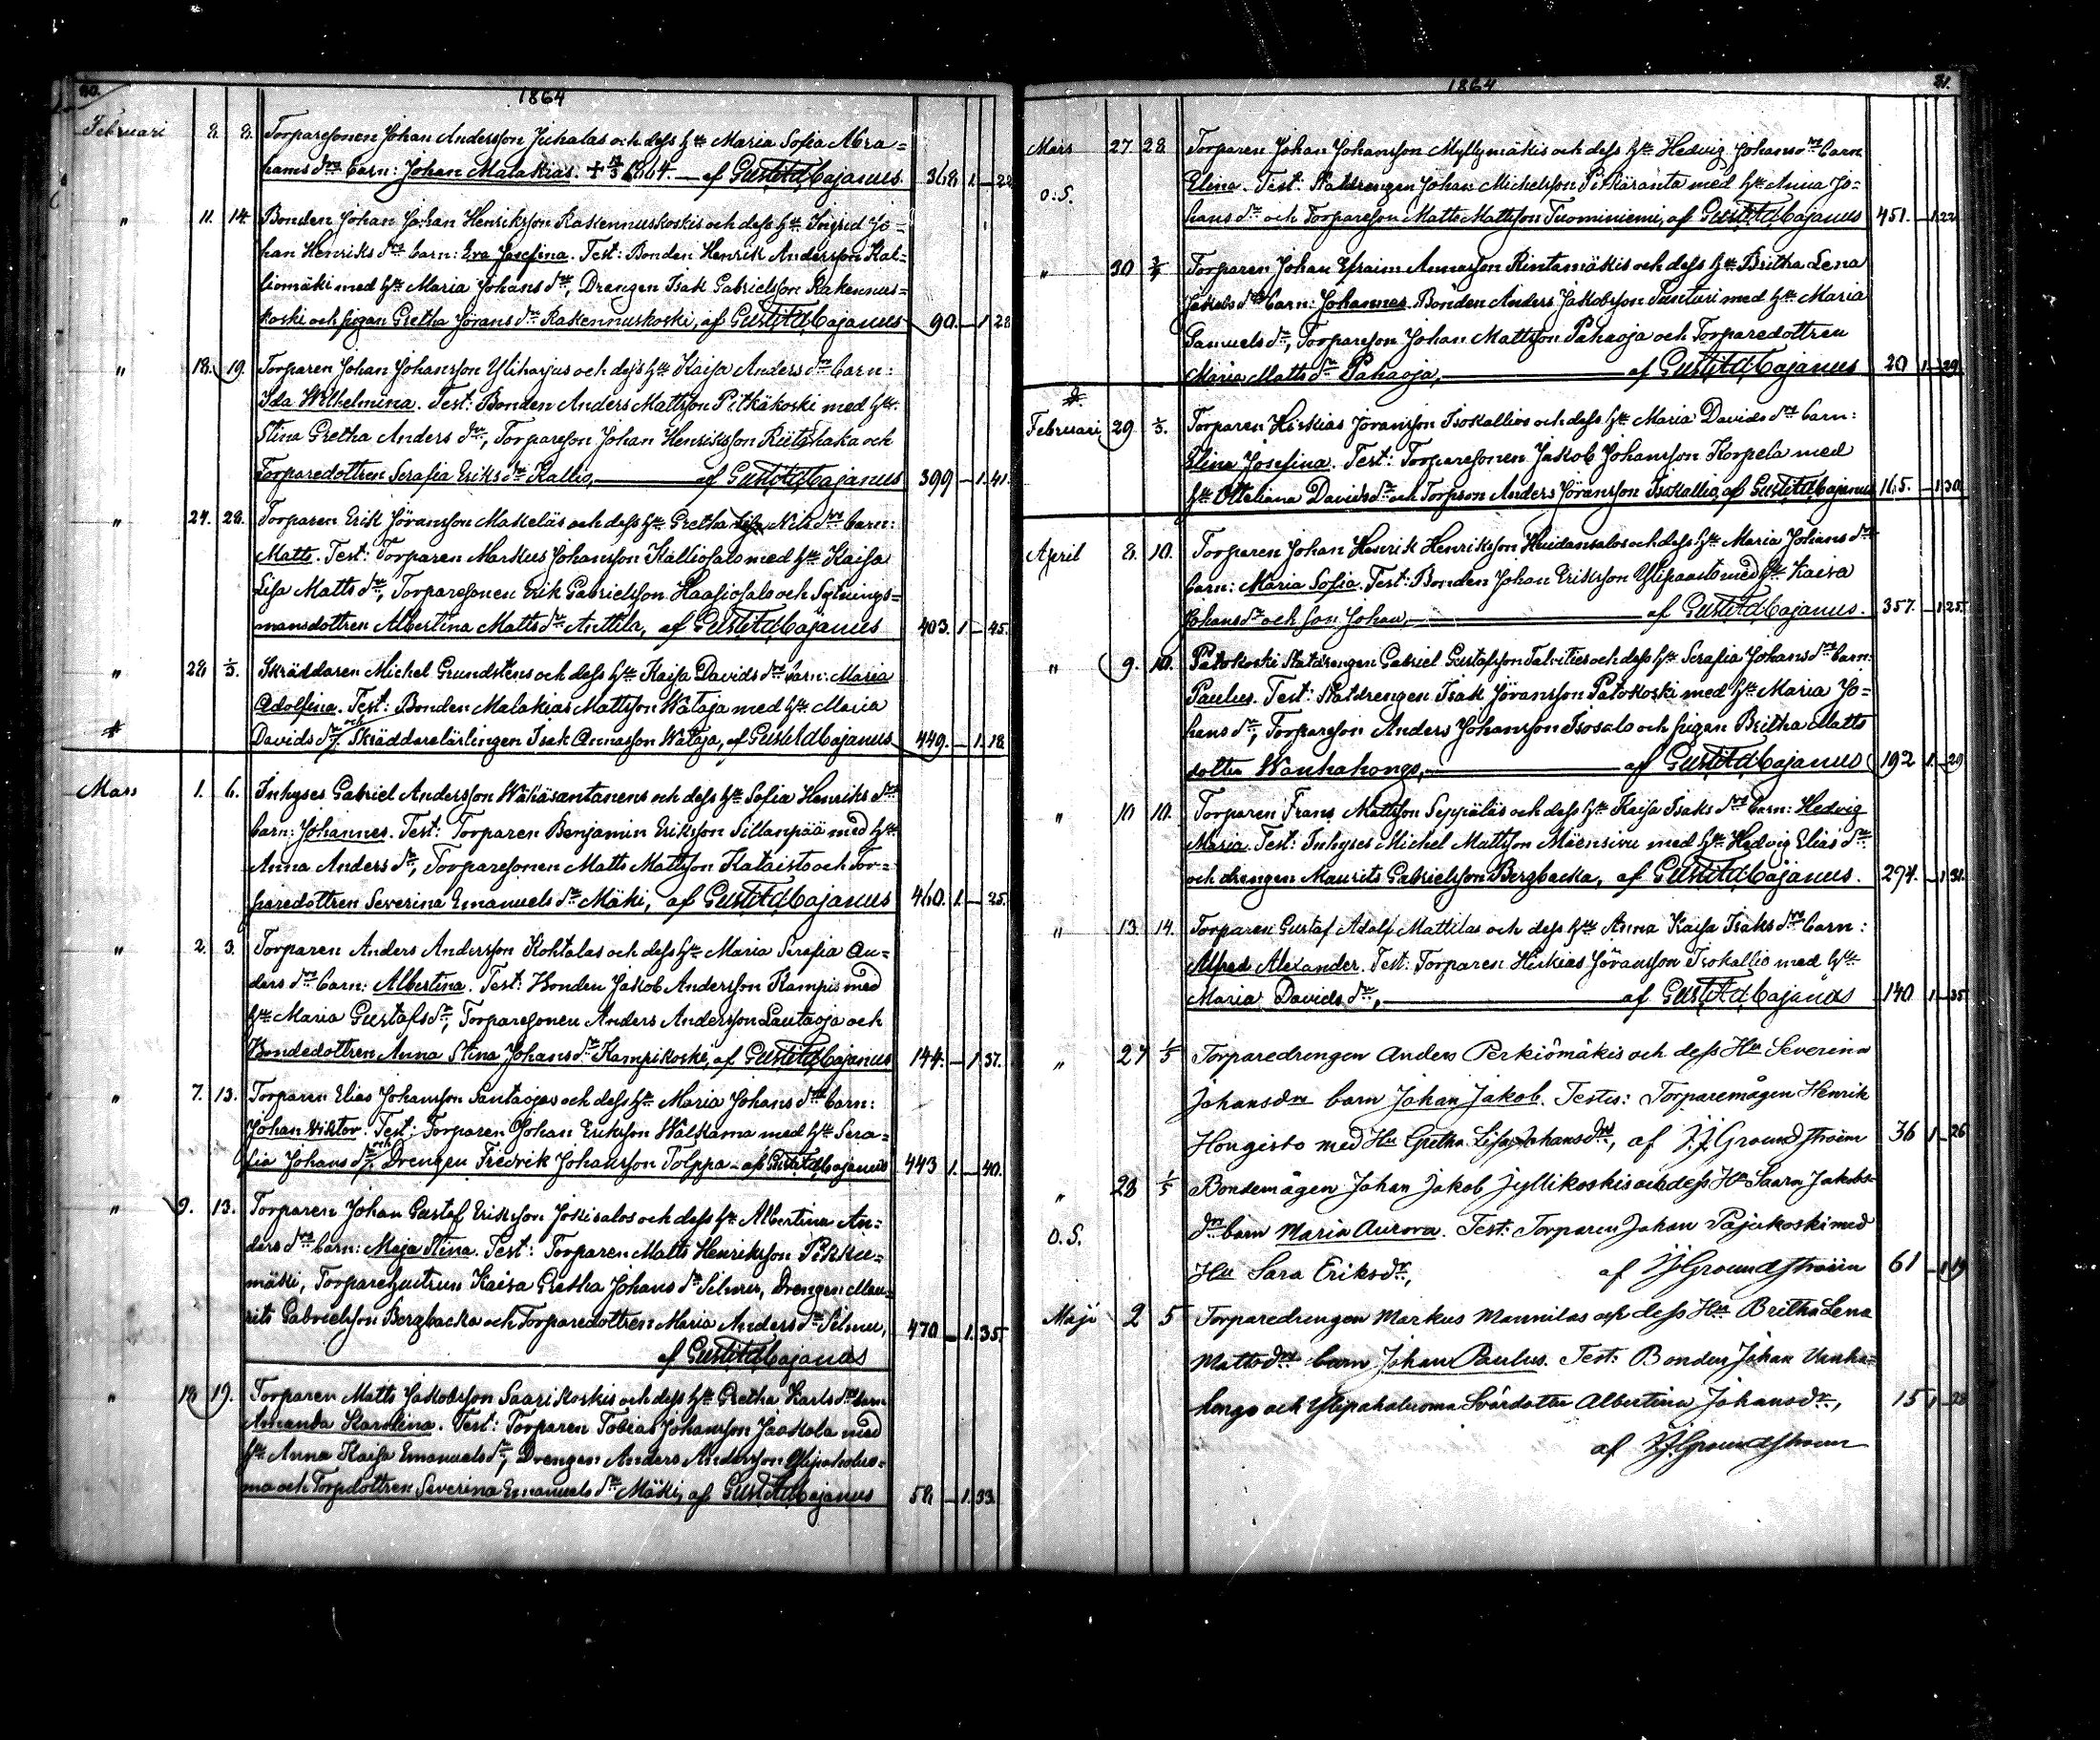 80.
1864
Februari 8. 8. Torparesonen Johan Andersson Juhalas och dess hu Maria Sofia Abra=
hams dra barn: Johan Malakias. + 1864. — af Gust. Ad. Cajanus 368 1. — 22
" 11. 14. Bonden Johan Johan Henriksson Rakennuskoskis och dess hu Ingrid Jo=
han Henriks dra barn: Eva Josefina. Test: Bonden Henrik Andersson Kal=
liomäki med hu Maria Johans dr, Drengen Isak Gabrielsson Rakennus=
koski och pigan Gretha Jörans dr Rakennuskoski, af Gust. Ad. Cajanus 90. — 1 28
" 18. 19. Torparen Johan Johansson Yliharjus och dess hu Kaisa Anders dra barn:
Ida Wilhelmina. Test: Bonden Anders Mattsson Pitkäkoski med hu
Stina Gretha Anders dr, Torpareson Johan Henriksson Riitahaka och
Torparedottren Serafia Eriks dr Kallio, — af Gust. Ad. Cajanus 399 — 1. 41.
" 24. 28. Torparen Erik Jöransson Makeläs och dess hu Gretha Nils dra barn:
Matts. Test: Torparen Markus Johansson Kalliosalo med hu Kaisa
Lisa Matts dr, Torparesonen Erik Gabrielsson Haasiosalo och Sytnings=
mansdottren Albertina Matts dr Anttila, af Gust. Ad. Cajanus 403. 1 — 45.
" 28 1/3. Skräddaren Michel Grundstens och dess hu Kaisa Davids dra barn: Maria
Adolfina. Test: Bonden Malakias Mattsson Wataja med hu Maria
Davids dr, och Skräddarelärlingen Isak Annasson Wataja, af Gust. Ad. Cajanus 449. — 1. 18.
Mars 1. 6. Inhyses Gabriel Andersson Wähäsantanens och dess hu Sofia Henriks dra
barn: Johannes. Test: Torparen Benjamin Eriksson Sillanpää med hu
Anna Anders dr, Torparesonen Matts Mattsson Kataisto och Tor=
paredottren Severina Emanuels dr Mäki, af Gust. Ad. Cajanus 460. 1. — 25.
" 2. 3. Torparen Anders Andersson Kohtalas och dess hu Maria Serafia An=
ders dra barn: Albertina. Test: Bonden Jakob Andersson Kampis med
hu Maria Gustafs dr, Torparesonen Anders Andersson Lautaoja och
Bondedottren Anna Stina Johans dr Kampikoski, af Gust. Ad. Cajanus 144. — 1 37.
" 7. 13. Torparen Elias Johansson Santaojas och dess hu Maria Johans dra barn:
Johan Viktor. Test: Torparen Johan Eriksson Walkama med hu Sera=
fia Johans dr, och Drengen Fredrik Johansson Tolppa — af Gust. Ad. Cajanus 443 1. — 40.
" 9. 13. Torparen Johan Gustaf Eriksson Jokisalos och dess hu Albertina An=
ders dra barn: Maja Stina. Test: Torparen Matts Henriksson Pikku=
mäki, Torparehustrun Kaisa Gretha Johans dr Silmu, Drengen Mau=
rits Gabrielsson Bergbacka och Torparedottren Maria Anders dr Silmu, 470 — 1. 35
af Gust. Ad. Cajanus
" 18 19. Torparen Matts Jakobsson Saarikoskis och dess hu Gretha Karls dra barn
Amanda Karolina. Test: Torparen Tobias Johansson Jaakola med
hu Anna Kaisa Emanuels dr, Drengen Anders Andersson Ylipaholuo=
ma och Torpdottren Severina Emanuels dr Mäki, af Gust. Ad. Cajanus 58 — 1. 33
1864
81.
Mars 27. 28. Torparen Johan Johansson Myllymäkis och dess hu Hedvig Johans dra barn
o.S. Elina. Test: Statdrengen Johan Michelsson Pitkäranta med hu Anna Jo=
hans dr och Torpareson Matts Mattsson Tuominiemi, af Gust. Ad. Cajanus 451. — 1 22
" 30 Torparen Johan Efraim Annasson Rintamäkis och dess hu Britha Lena
Jakobs dra barn: Johannes. Bonden Anders Jakobsson Tuuturi med hu Maria
Samuels dr, Torpareson Johan Mattsson Pahaoja och Torparedottren
Maria Matts dr Pahaoja, — af Gust. Ad. Cajanus 20 1. — 29
Februari 29 1/3. Torparen Hiskias Jöransson Isokallios och dess hu Maria Davids dra barn:
Elina Josefina. Test: Torparesonen Jakob Johansson Korpela med
hu Otteliana Davids dr och Torpson Anders Jöransson Isokallio, af Gust. Ad. Cajanus 165. — 1 30
April 8. 10. Torparen Johan Henrik Henriksson Huidansalos och dess hu Maria Johans dra
barn: Maria Sofia. Test: Bonden Johan Eriksson Ylikaasto med hu Kaisa
Johans dr och son Johan, — af Gust. Ad. Cajanus. 357. — 1 25.
" 9. 10. Patokoski Statdrengen Gabriel Gustafsson Talvities och dess hu Serafia Johans dra barn:
Paulus. Test: Statdrengen Isak Jöransson Patokoski med hu Maria Jo=
hans dr, Torpareson Anders Johansson Isosalo och pigan Britha Matts
dotter Wanhahongo, — af Gust. Ad. Cajanus 192 1. — 29
" 10 10. Torparen Frans Mattsson Seppäläs och dess hu Kaisa Isaks dra barn: Hedvig
Maria. Test: Inhyses Michel Mattsson Mäensivu med hu Hedvig Elias dr
och drengen Maurits Gabrielsson Bergbacka, af Gust. Ad. Cajanus. 274. — 1 31.
" 13. 14. Torparen Gustaf Adolf Mattilas och dess hu Anna Kaisa Isaks dra barn:
Alfred Alexander. Test: Torparen Hiskias Jöransson Isokallio med hu
Maria Davids dr, — af Gust. Ad. Cajanus 140 1 — 35
" 27 1/5 Torparedrengen Anders Perkiömäkis och dess Hu Severina
Johansdra barn Johan Jakob. Testes: Torparemågen Henrik
Hongisto med Hu Gretha Lisa Johansdr, af J. J. Groundstroem 36 1 — 26
" 28 1/5 Bondemågen Johan Jakob Jyllikoskis och dess Hu Saara Jakobs
o.S. dra barn Maria Aurora. Test: Torparen Johan Pajukoski med
Hu Sara Eriksdr, af J. J. Groundstroem 61 — 1 19
Maji 2 5 Torparedrengen Markus Mannilas och dess Hu Britha Lena
Mattsdra barn Johan Paulus. Test: Bonden Johan Vanha=
hongo och Ylipaholuoma Svärdotter Albertina Johansdr, 15 1 — 28
af J. J. Groundstroem